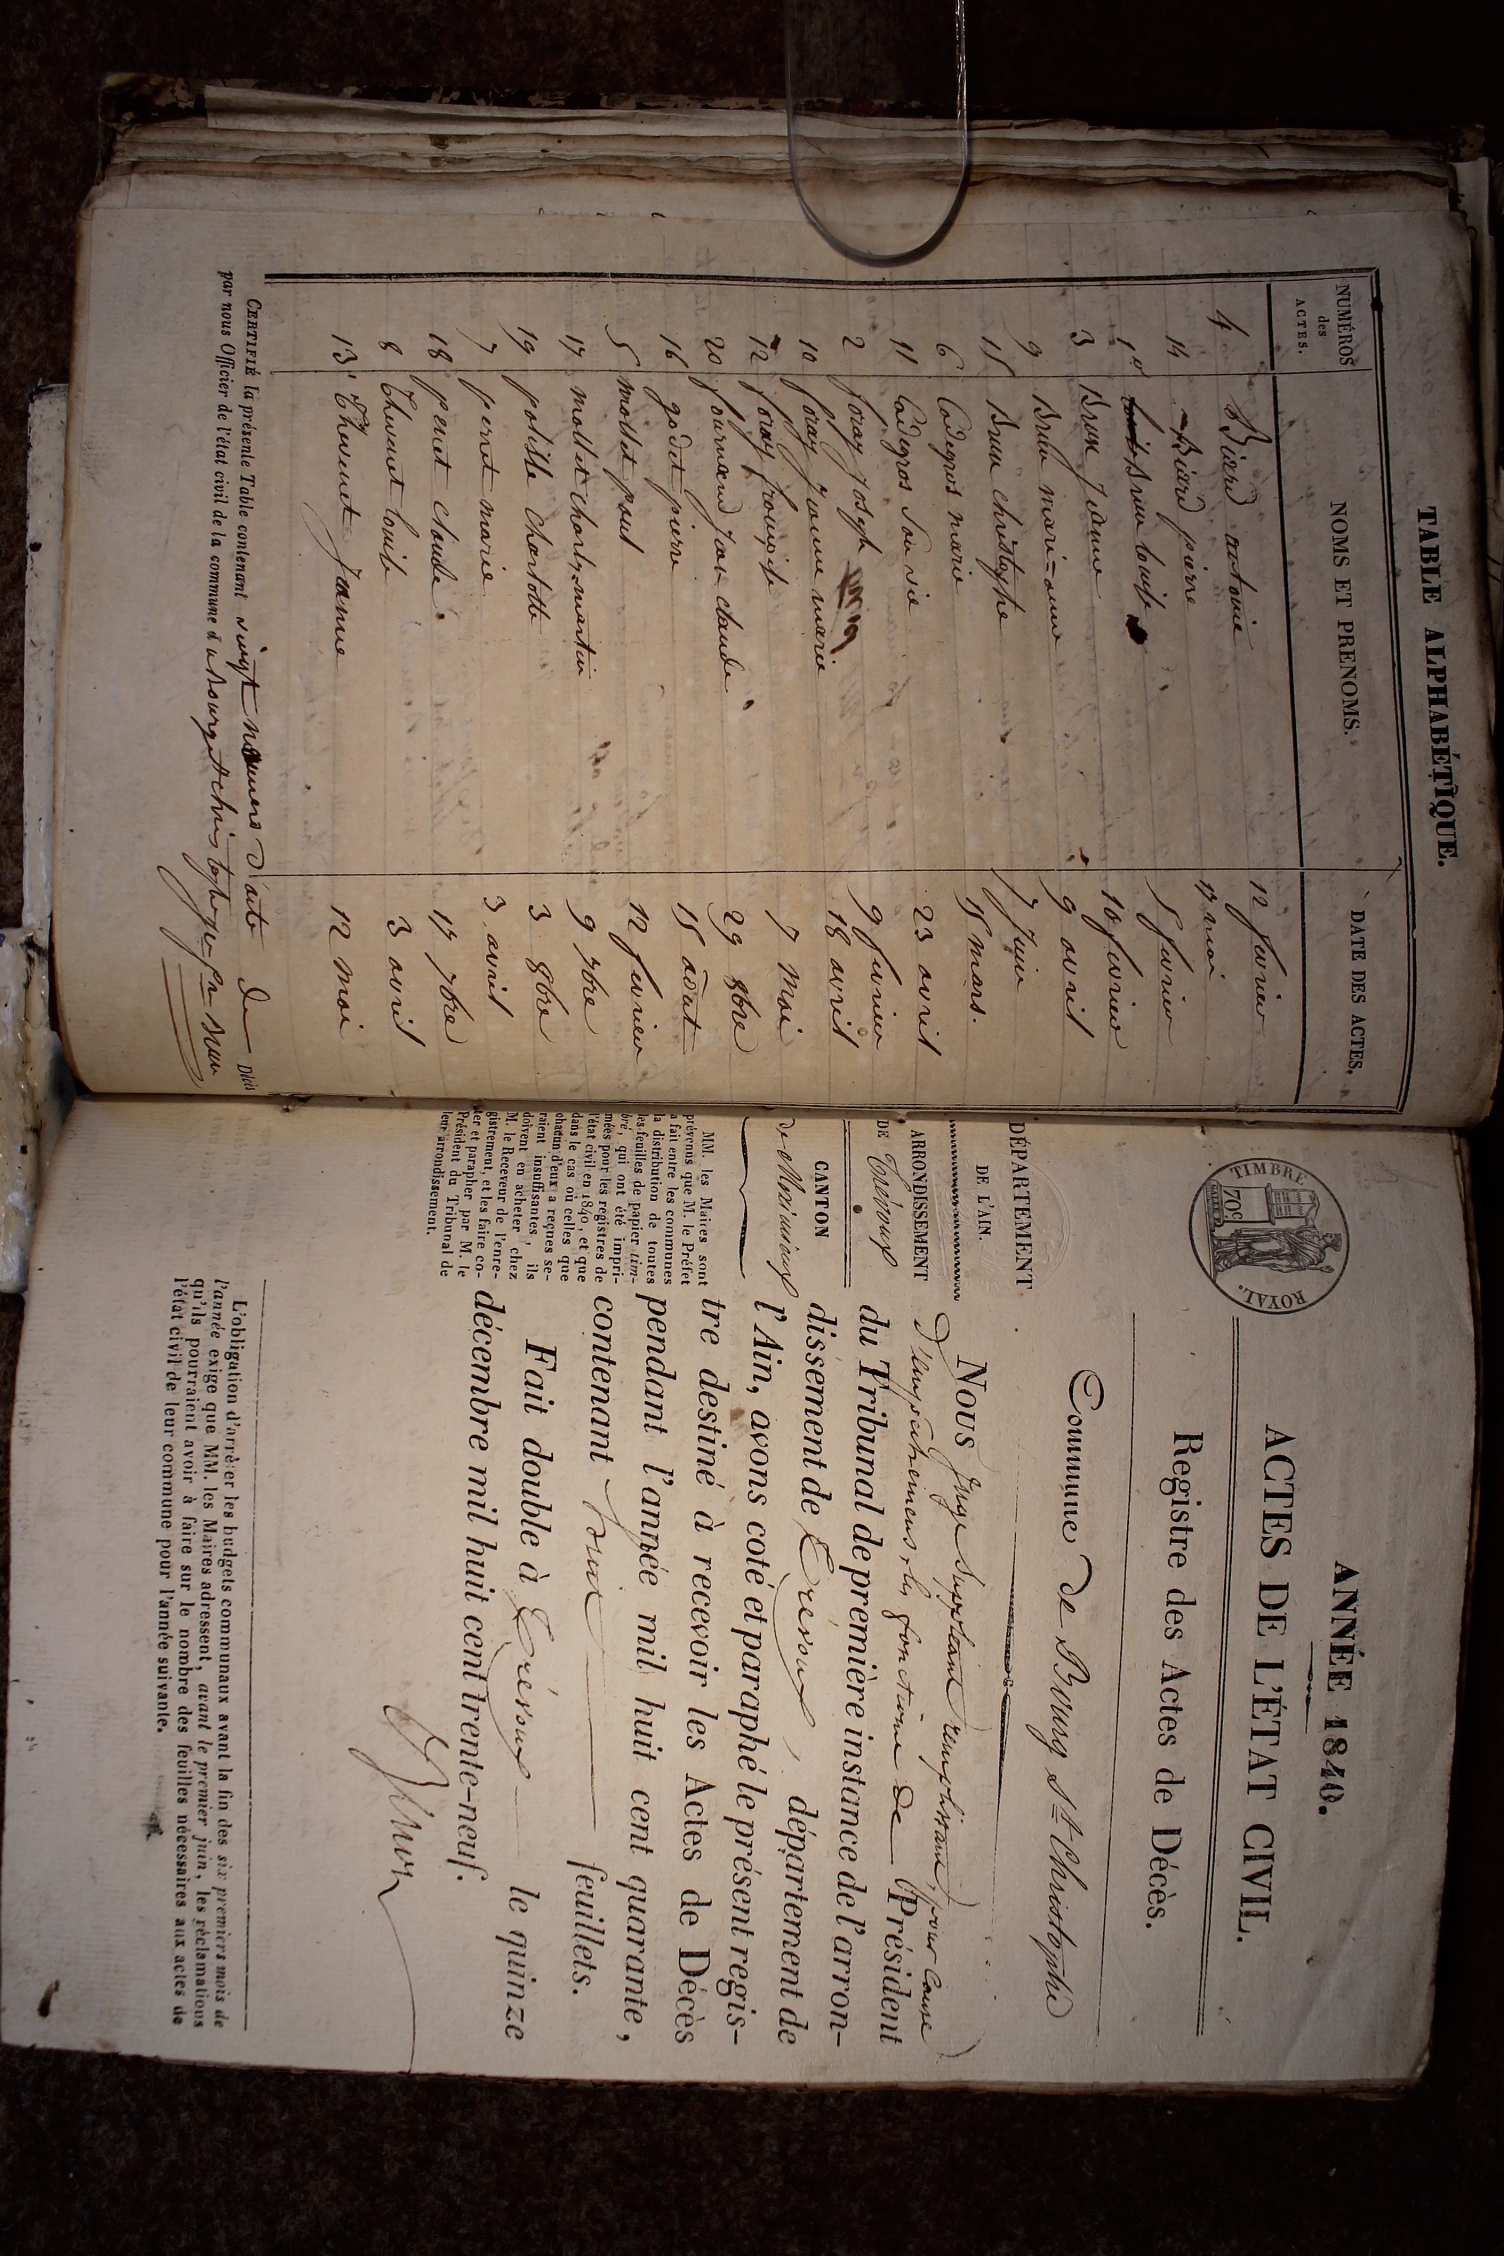 TABLE ALPHABÉTIQUE.
NUMÉROS des ACTES.
NOMS ET PRENOMS.
DATE DES ACTES.
4 Biard antoine 12 fevrier
14 Biard pierre 17 mai
1er Brun louise 5 fevrier
3 Brun Jeanne 10 fevrier
9 Brun marie=anne 9 avril
15 Brun christophe 7 Juin
6 Cadegros marie 15 mars.
11 Cadegros 23 avril
2 foray Joseph 9 fevrier
10 foray Jeanne marie 18 avril
12 foray françoise 7 mai
20 fournand Jean claude 29 8bre
16 godet pierre 15 aout
5 mollet paul 12 fevrier
17 mollet charles martin 9 7bre
19 charlotte 3 8bre
7 perret marie 3 avril
18 perret claude 17 7bre
8 Thevenet louise 3 avril
13 Thevenet Jeanne 12 mai
CERTIFIÉ la présente Table contenant vingt numeros d'acte de Décès
par nous Officier de l'état civil de la commune du bourg St christophe
ANNÉE 1840.
ACTES DE L'ÉTAT CIVIL.
Registre des Actes de Décès.
Commune de Bourg St. Christophe
TIMBRE ROYAL.
70c
DÉPARTEMENT
DE L'AIN.
ARRONDISSEMENT
DE Trévoux
CANTON
de Meximieux
MM. les Maires sont
prévenus que M. le Préfet
a fait entre les communes
la distribution de toutes
les feuilles de papier tim-
bré, qui ont été impri-
mées pour les registres de
l'état civil en 1840, et que
dans le cas où celles que
chacun d'eux a reçues se-
raient insuffisantes, ils
doivent en acheter chez
M. le Receveur de l'enre-
gistrement, et les faire co-
ter et parapher par M. le
Président du Tribunal de
leur arrondissement.
NOUS Juge Suppléant remplissant, (pour cause
d'empêchement) les fonctions de Président
du Tribunal de première instance de l'arron-
dissement de Trévoux, département de
l'Ain, avons coté et paraphé le présent regis-
tre destiné à recevoir les Actes de Décès
pendant l'année mil huit cent quarante,
contenant feuillets.
Fait double à Trévoux le quinze
décembre mil huit cent trente-neuf.
L'obligation d'arrêter les budgets communaux avant la fin des six premiers mois de
l'année exige que MM. les Maires adressent, avant le premier juin, les réclamations
qu'ils pourraient avoir à faire sur le nombre des feuilles nécessaires aux actes de
l'état civil de leur commune pour l'année suivante.